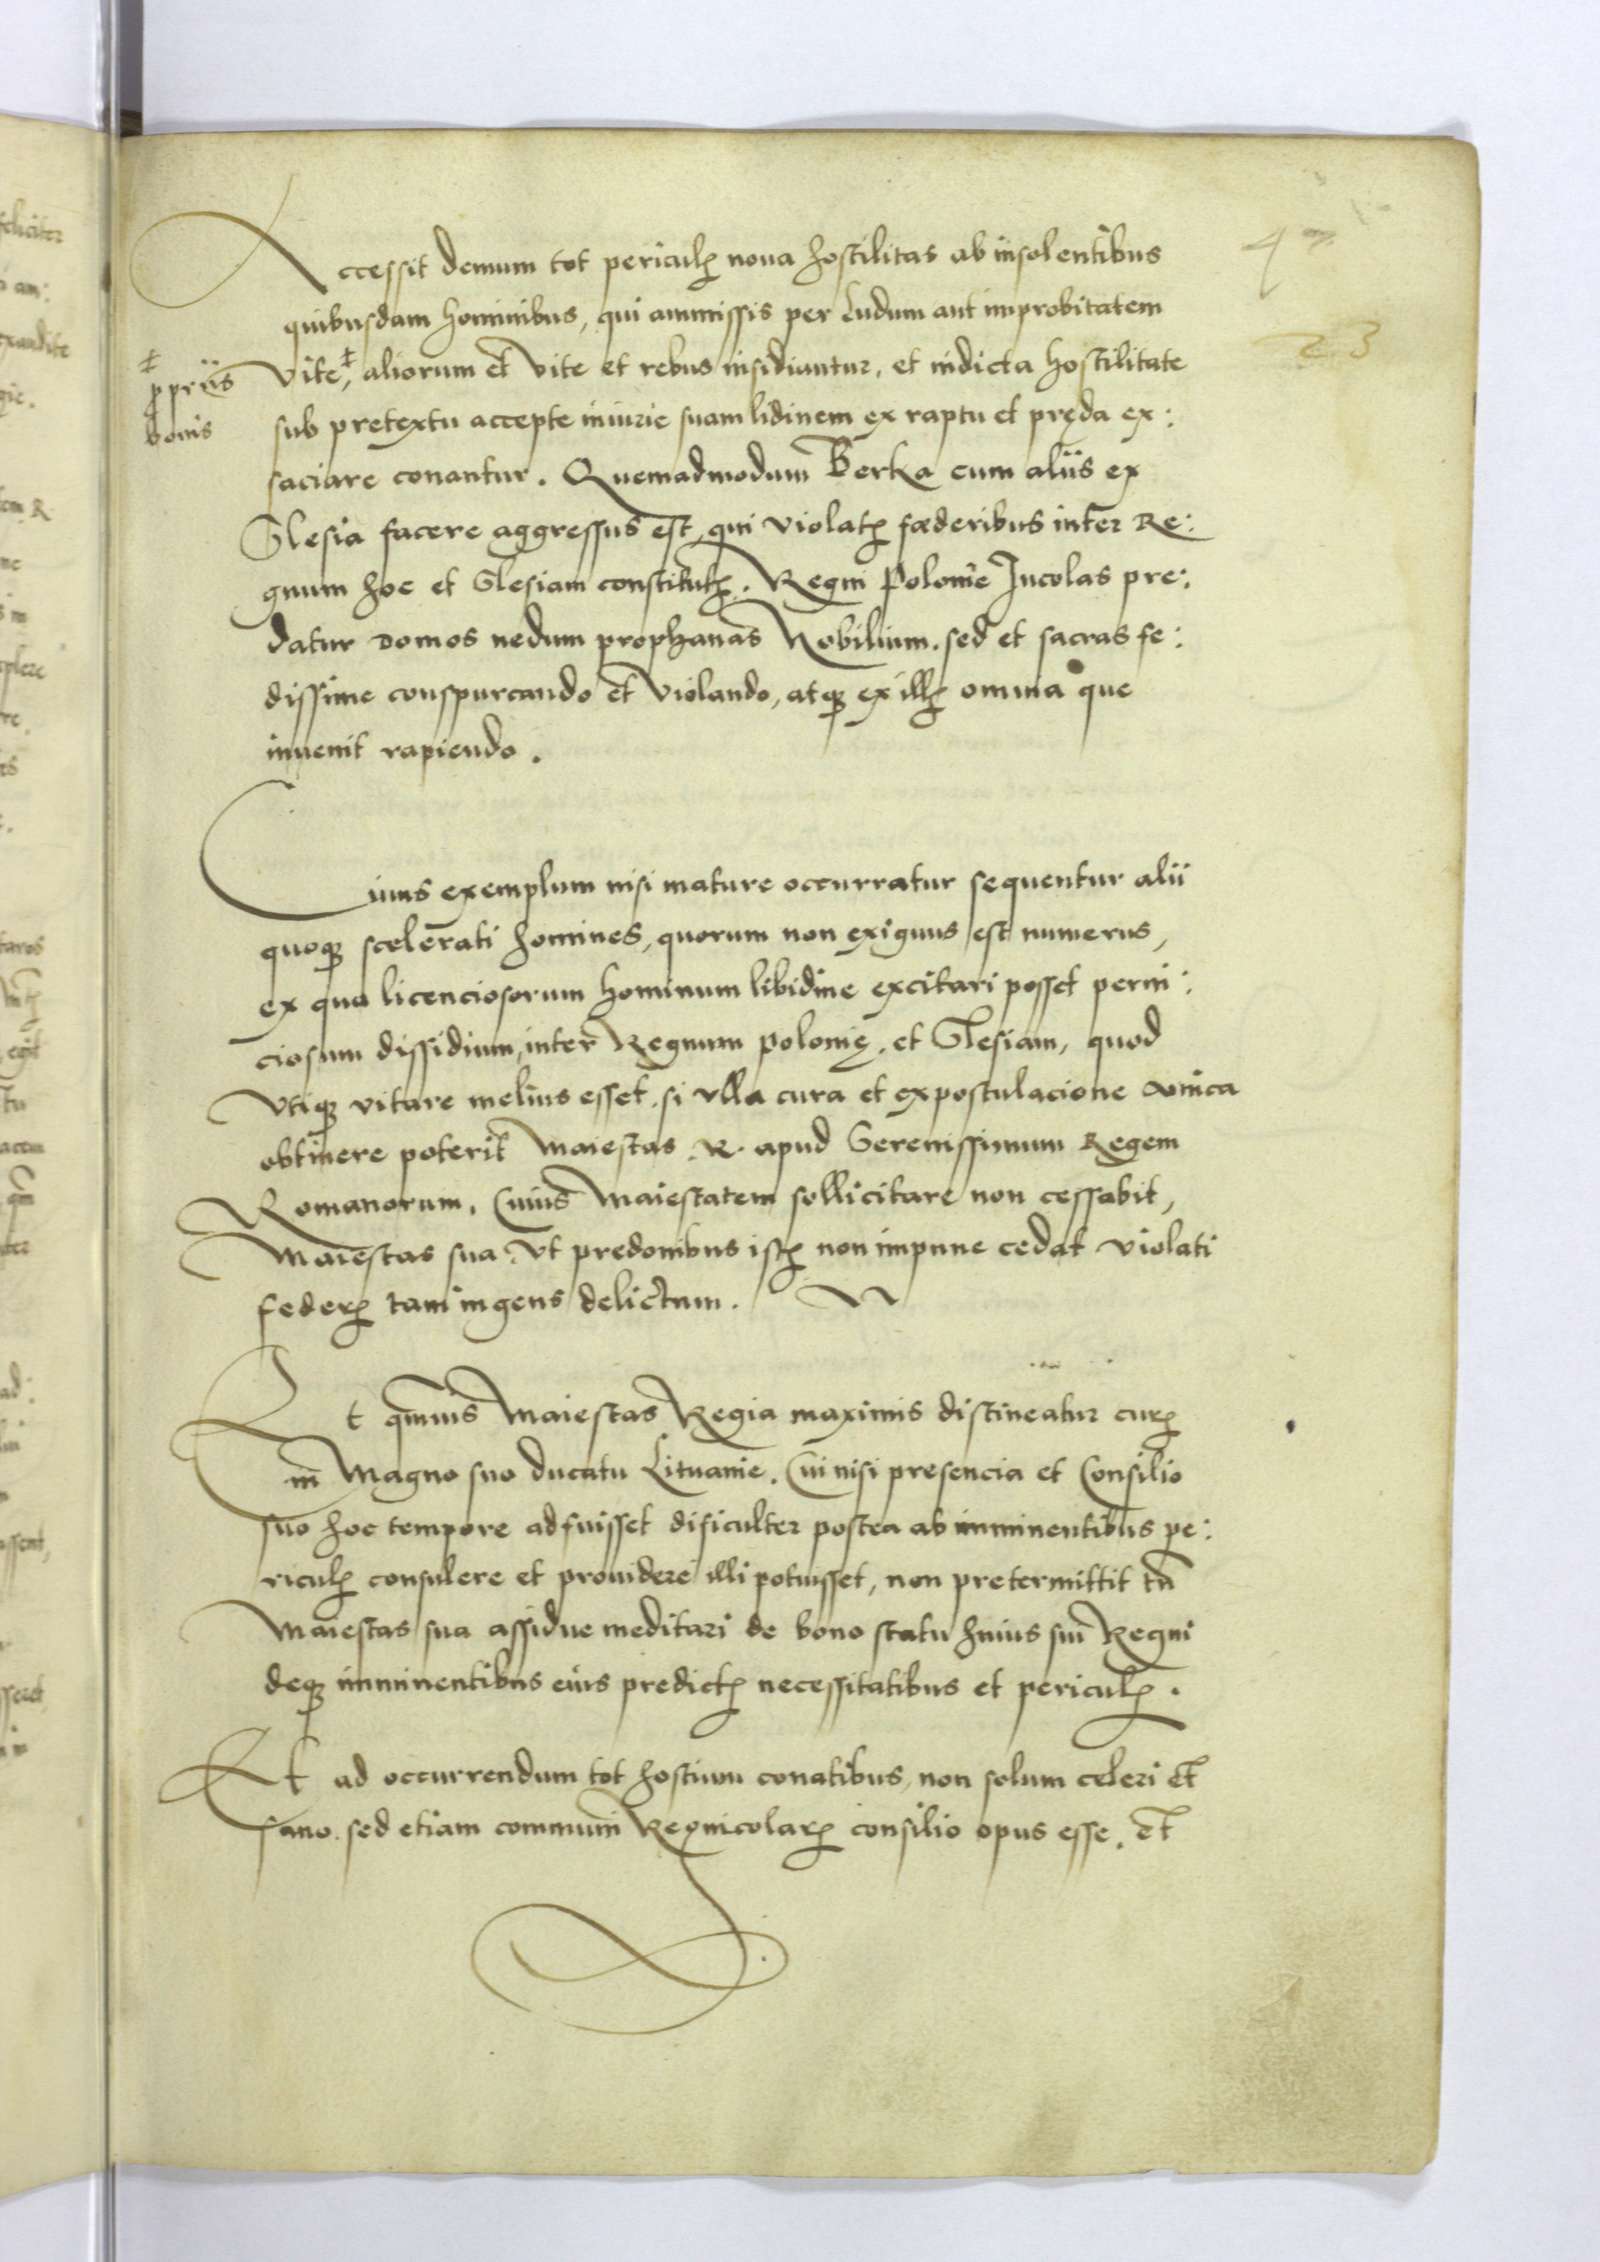 47
23
Accessit demum tot periculꝭ noua hostilitas ab insolentibus
quibusdam hominibus, qui ammissis per ludum aut improbitatem
vite ‡, aliorum et vite et rebus insidiantur, et indicta hostilitate
‡ ꝓprijs
bonis
sub pretextu accepte iniurie suam lidinem ex raptu et pręda ex:
saciare conantur. Quemadmodum Berka cum alijs ex
Slesia facere aggressus est, qui violatꝭ fœderibus inter Re:
gnum hoc et Slesiam constitutꝭ. Regni Polonie Incolas pre:
datur domos nedum prophanas Nobilium. sed et sacras fe:
dissime conspurcando et violando, atqꝫ ex illꝭ omnia que
inuenit rapiendo.
Cuius exemplum nisi mature occurratur sequentur alii
quoqꝫ scelerati homines, quorum non exiguus est numerus,
ex qua licenciosorum hominum libidine excitari posset perni:
ciosum dissidium, inter Regnum polonię, et Slesiam, quod
vtiqꝫ vitare melius esset. si vlla cura et expostulacione amica
obtinere poterit Maiestas .R. apud Serenissimum Regem
Romanorum, Cuius Maiestatem sollicitare non cessabit,
Maiestas sua. Vt predonibus istꝭ non impune cedat violati
federꝭ tam ingens delictum.
Et q̃muis Maiestas Regia maximis distineatur curꝭ
in Magno suo ducatu Lituanie. Cui nisi presencia et Consilio
suo hoc tempore adfuisset dificulter postea ab imminentibus pe:
riculꝭ consulere et prouidere illi potuisset, non pretermittit tñ
Maiestas sua assidue meditari de bono statu huius sui Regni
deqꝫ imminentibus eius predictꝭ necessitatibus et periculꝭ.
Et ad occurrendum tot hostium conatibus, non solum celeri et
sano. sed etiam communi Regnicolarꝭ consilio opus esse. Et